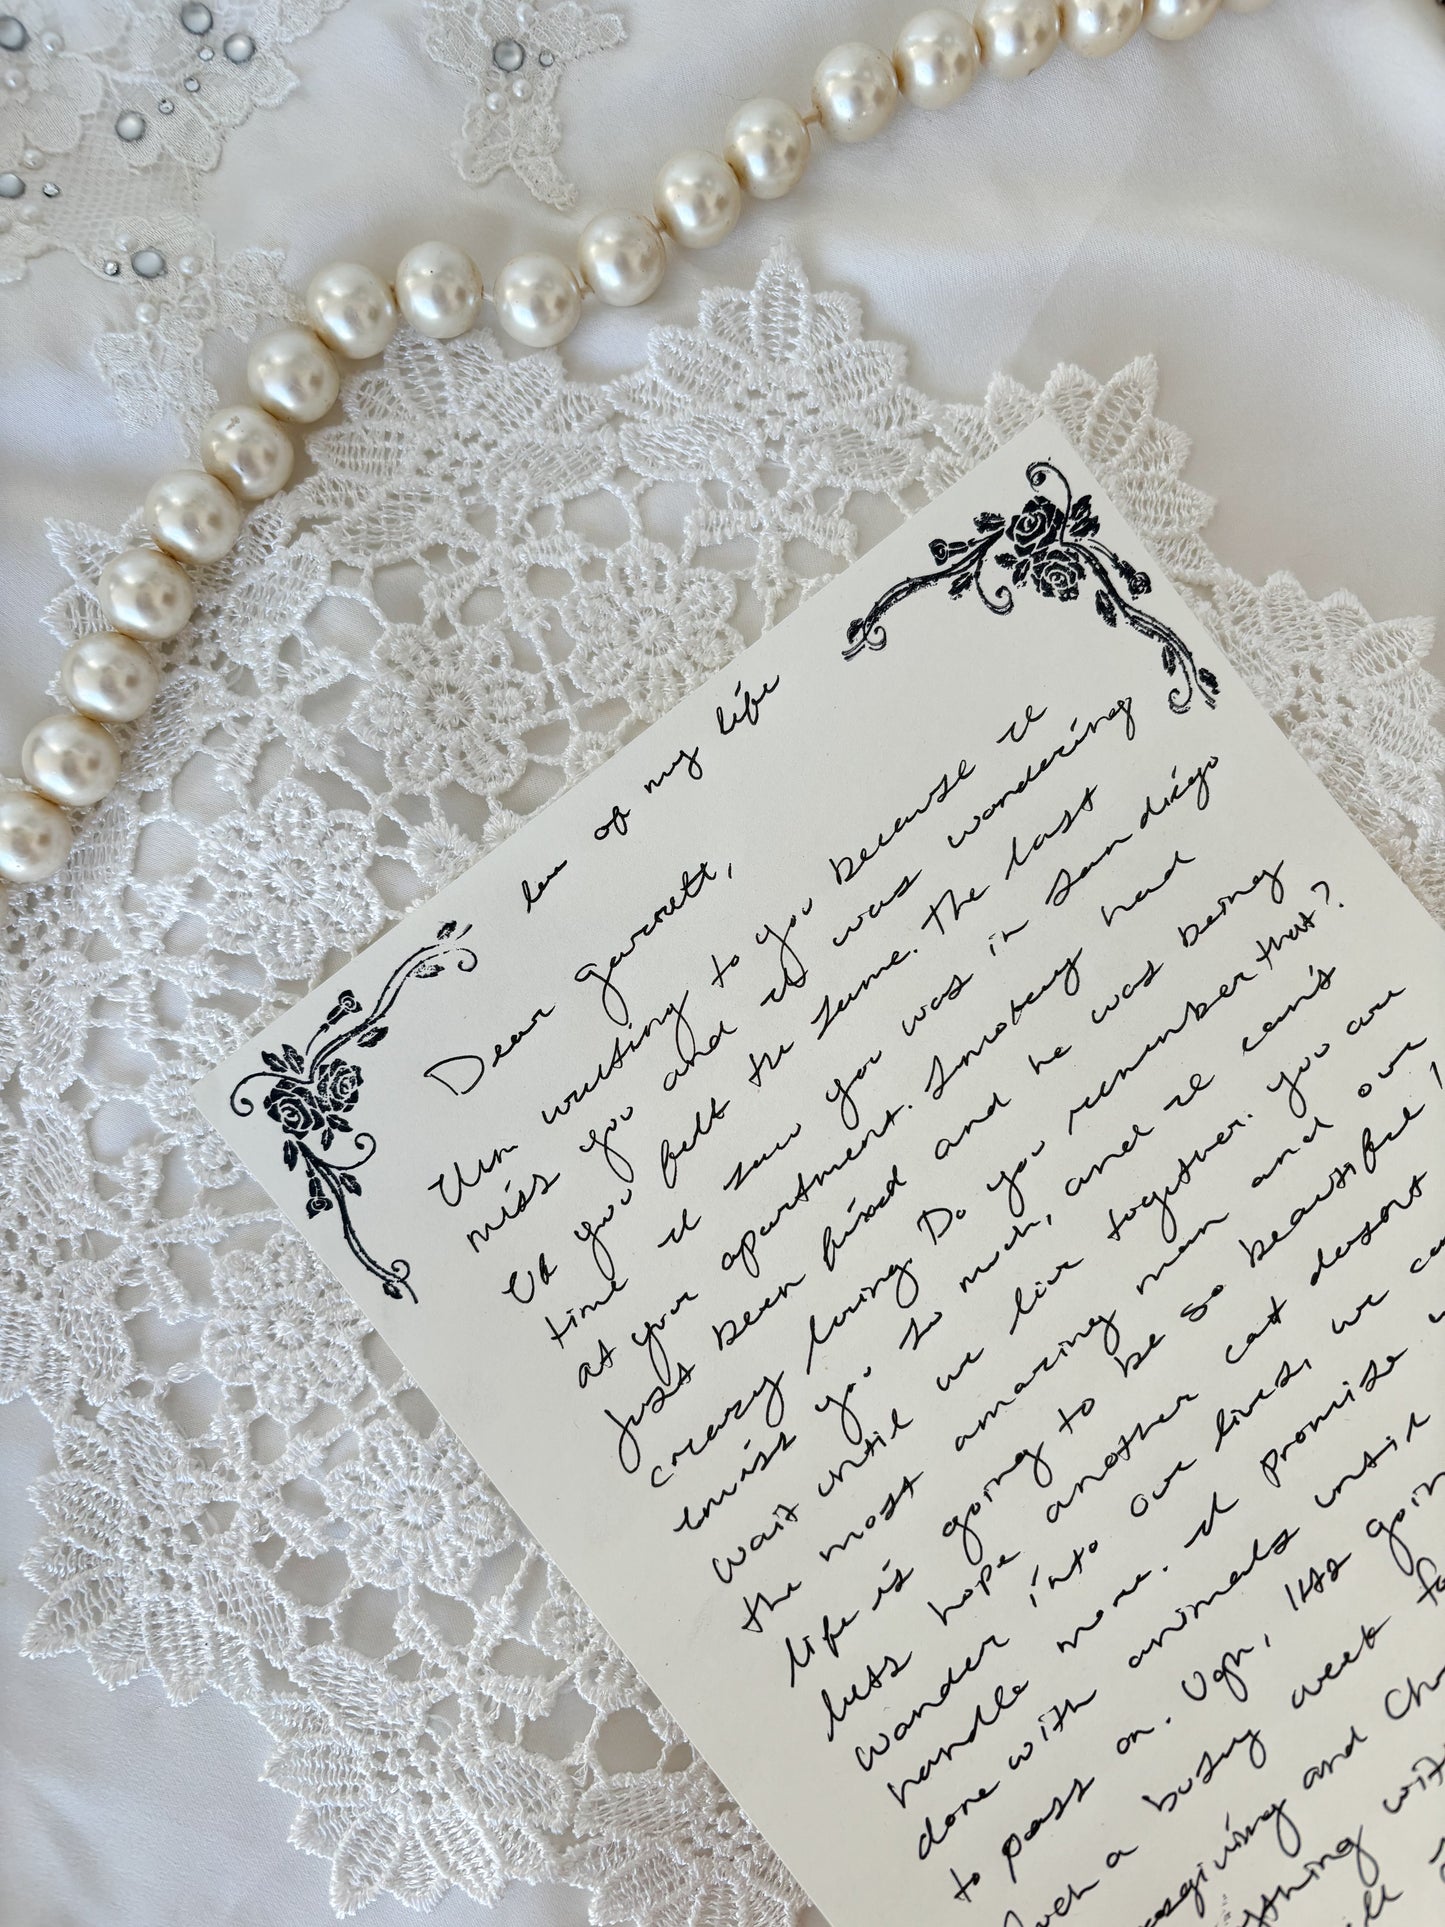 love of my life
Dear Garrett,
I'm writing to you because I
miss you and I was wondering
If you felt the same. The last
time I saw you was in San diego
at your apartment. Smokey had
just been fixed and he was being
crazy loving. Do you remember that?
I miss you so much, and I can't
wait until we live together. you are
the most amazing man and our
life is going to be so beautiful!
lets hope another cat doesn't
wander into our lives, we can
handle more. I promise
done with animals until
to pass on. Ugh, its going
such a busy week fo
giving and Ch
thing with